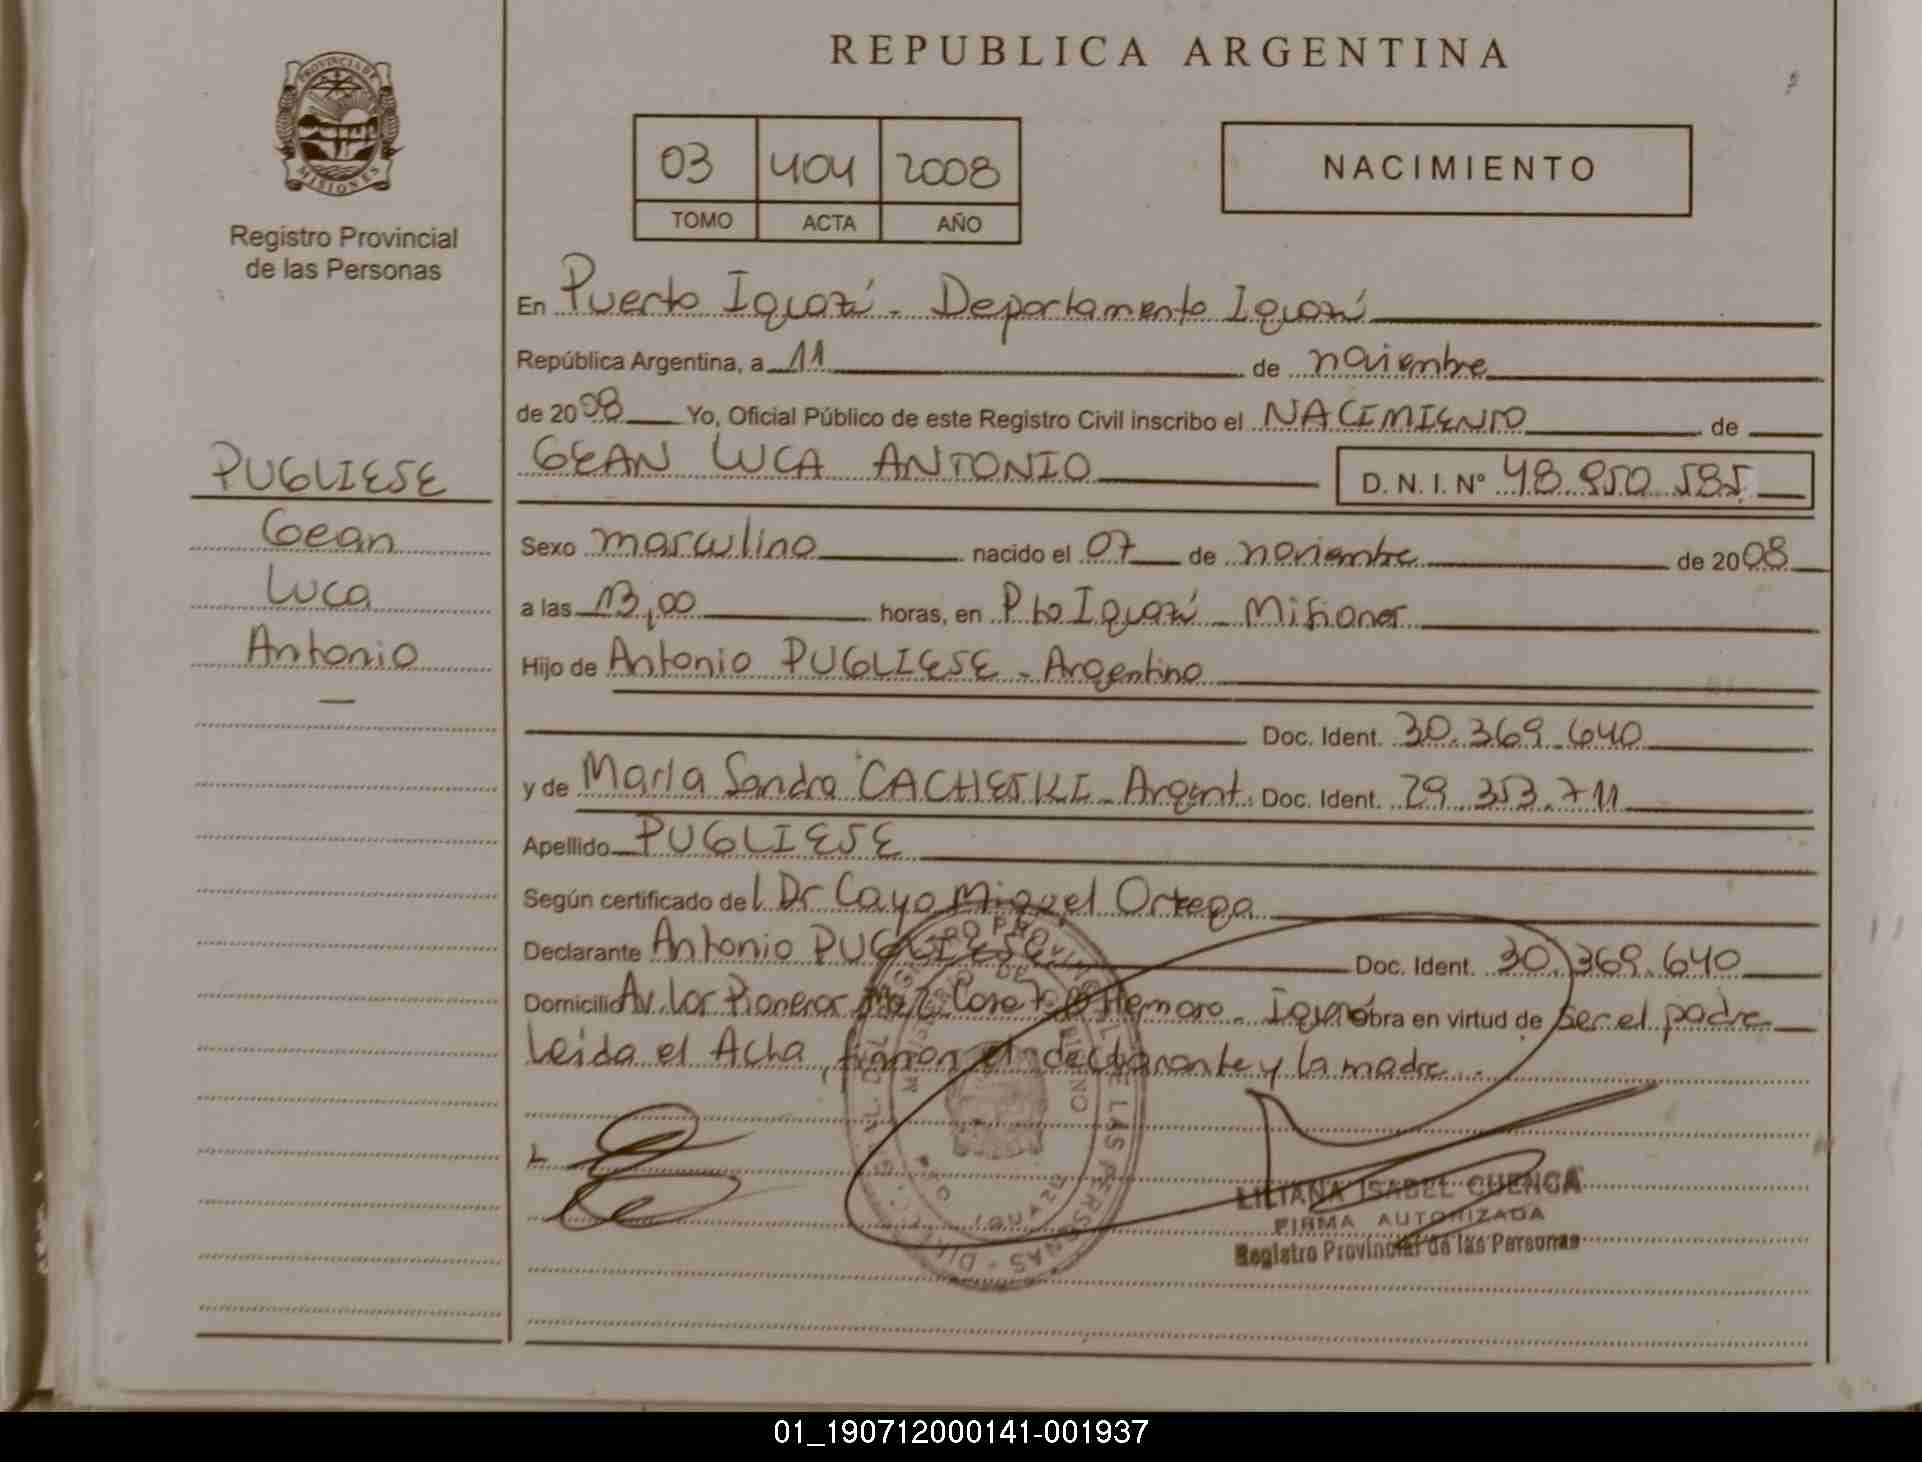 REPUBLICA ARGENTINA
PROVINCIA DE MISIONES
Registro Provincial
de las Personas
03 404 2008
TOMO ACTA AÑO
NACIMIENTO
En Puerto Iguazú - Departamento Iguazú
República Argentina, a 11 de noviembre
de 2008 Yo, Oficial Público de este Registro Civil inscribo el NACIMIENTO de
GEAN LUCA ANTONIO D. N. I. Nº 48.850.585
PUGLIESE
Gean
Luca
Antonio
Sexo masculino nacido el 07 de noviembre de 2008
a las 13,00 horas, en Pto Iguazú - Misiones
Hijo de Antonio PUGLIESE - Argentino
Doc. Ident. 30.369.640
y de María Sandra CACHESKI - Argent. Doc. Ident. 29.353.711
Apellido PUGLIESE
Según certificado del Dr Cayo Miguel Ortega
Declarante Antonio PUGLIESE Doc. Ident. 30.369.640
Domicilio Av. Los Pioneros Casa Iguazú obra en virtud de ser el padre
Leida el Acta, firman el declarante y la madre.
LILIANA ISABEL CUENCA
FIRMA AUTORIZADA
Registro Provincial de las Personas
01_190712000141-001937